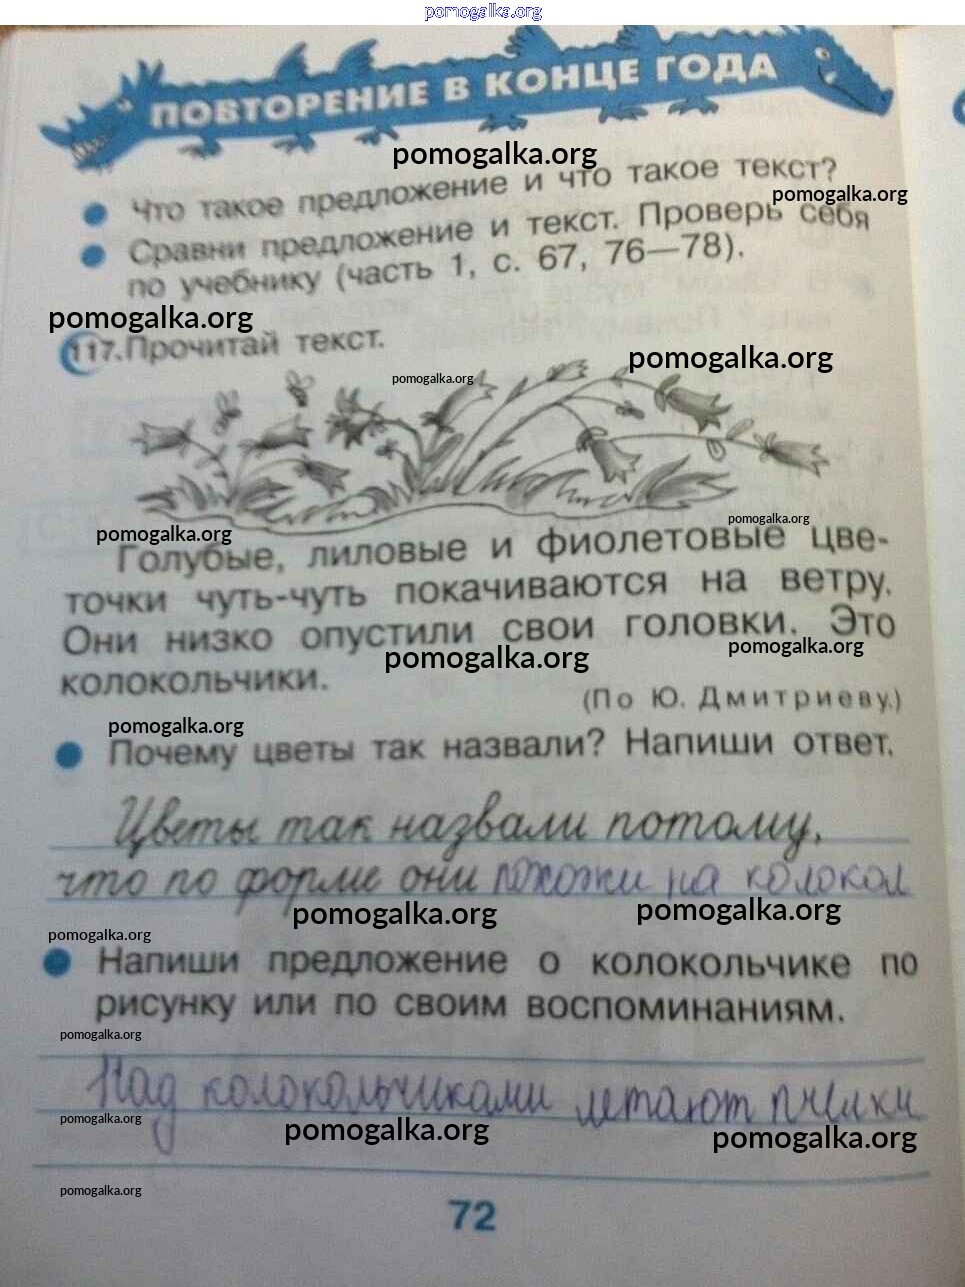 pomogalka.org
ПОВТОРЕНИЕ В КОНЦЕ ГОДА
pomogalka.org
Что такое предложение и что такое текст?
pomogalka.org
Сравни предложение и текст. Проверь себя
по учебнику (часть 1, с. 67, 76—78).
pomogalka.org
117. Прочитай текст.
pomogalka.org
pomogalka.org
pomogalka.org
pomogalka.org
Голубые, лиловые и фиолетовые цве-
точки чуть-чуть покачиваются на ветру.
Они низко опустили свои головки. Это
pomogalka.org
pomogalka.org
колокольчики.
(По Ю. Дмитриеву.)
pomogalka.org
Почему цветы так назвали? Напиши ответ.
Цветы так назвали потому,
что по форме они похожи на колокол
pomogalka.org
pomogalka.org
pomogalka.org
Напиши предложение о колокольчике по
рисунку или по своим воспоминаниям.
pomogalka.org
Над колокольчиками летают пчёлки
pomogalka.org
pomogalka.org
pomogalka.org
pomogalka.org
72